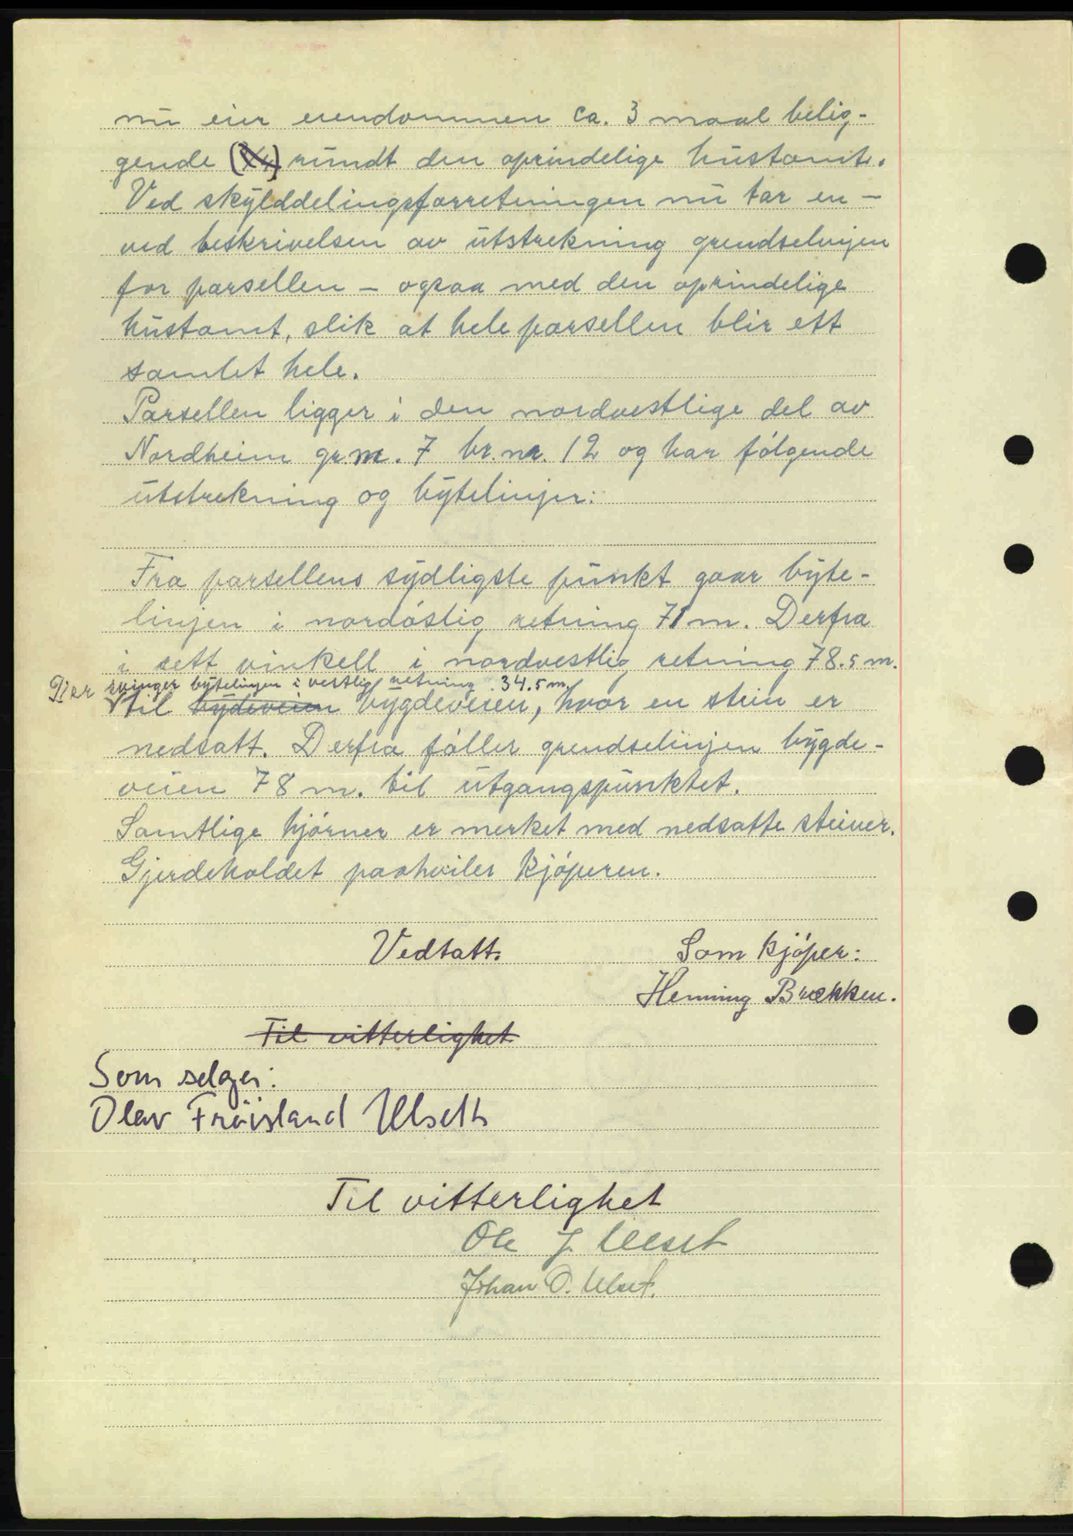 nu eier eiendommen ca. 3 maal belig-
gende rundt den oprindelige hustomt.
Ved skylddelingsforretningen nu tar en -
ved beskrivelsen av utstrekning grendselinjen
for parsellen - ogsaa med den oprindelige
hustomt, slik at hele parsellen blir ett
samlet hele.
Parsellen ligger i den nordvestlige del av
Nordheim gr.nr. 7 br.nr. 12 og har følgende
utstrekning og bytelinjer:
Fra parsellens sydligste punkt gaar byte-
linjen i nordøstlig retning 71 m. Derfra
i rett vinkell i nordvestlig retning 78.5 m.
Der svinger bytelinjen i vestlig retning 34.5 m.
til bydeveien bygdeveien, hvor en stein er
nedsatt. Derfra føller grendselinjen bygde-
veien 78 m. til utgangspunktet.
Samtlige hjørner er merket med nedsatte steiner.
Gjerdeholdet paahviler kjøperen.
Vedtatt.
Som kjøper:
Henning Brækken.
Til vitterlighet
Som selger:
Olav Frøisland Ulseth
Til vitterlighet
Ole J. Ulset
Johan O. Ulset.